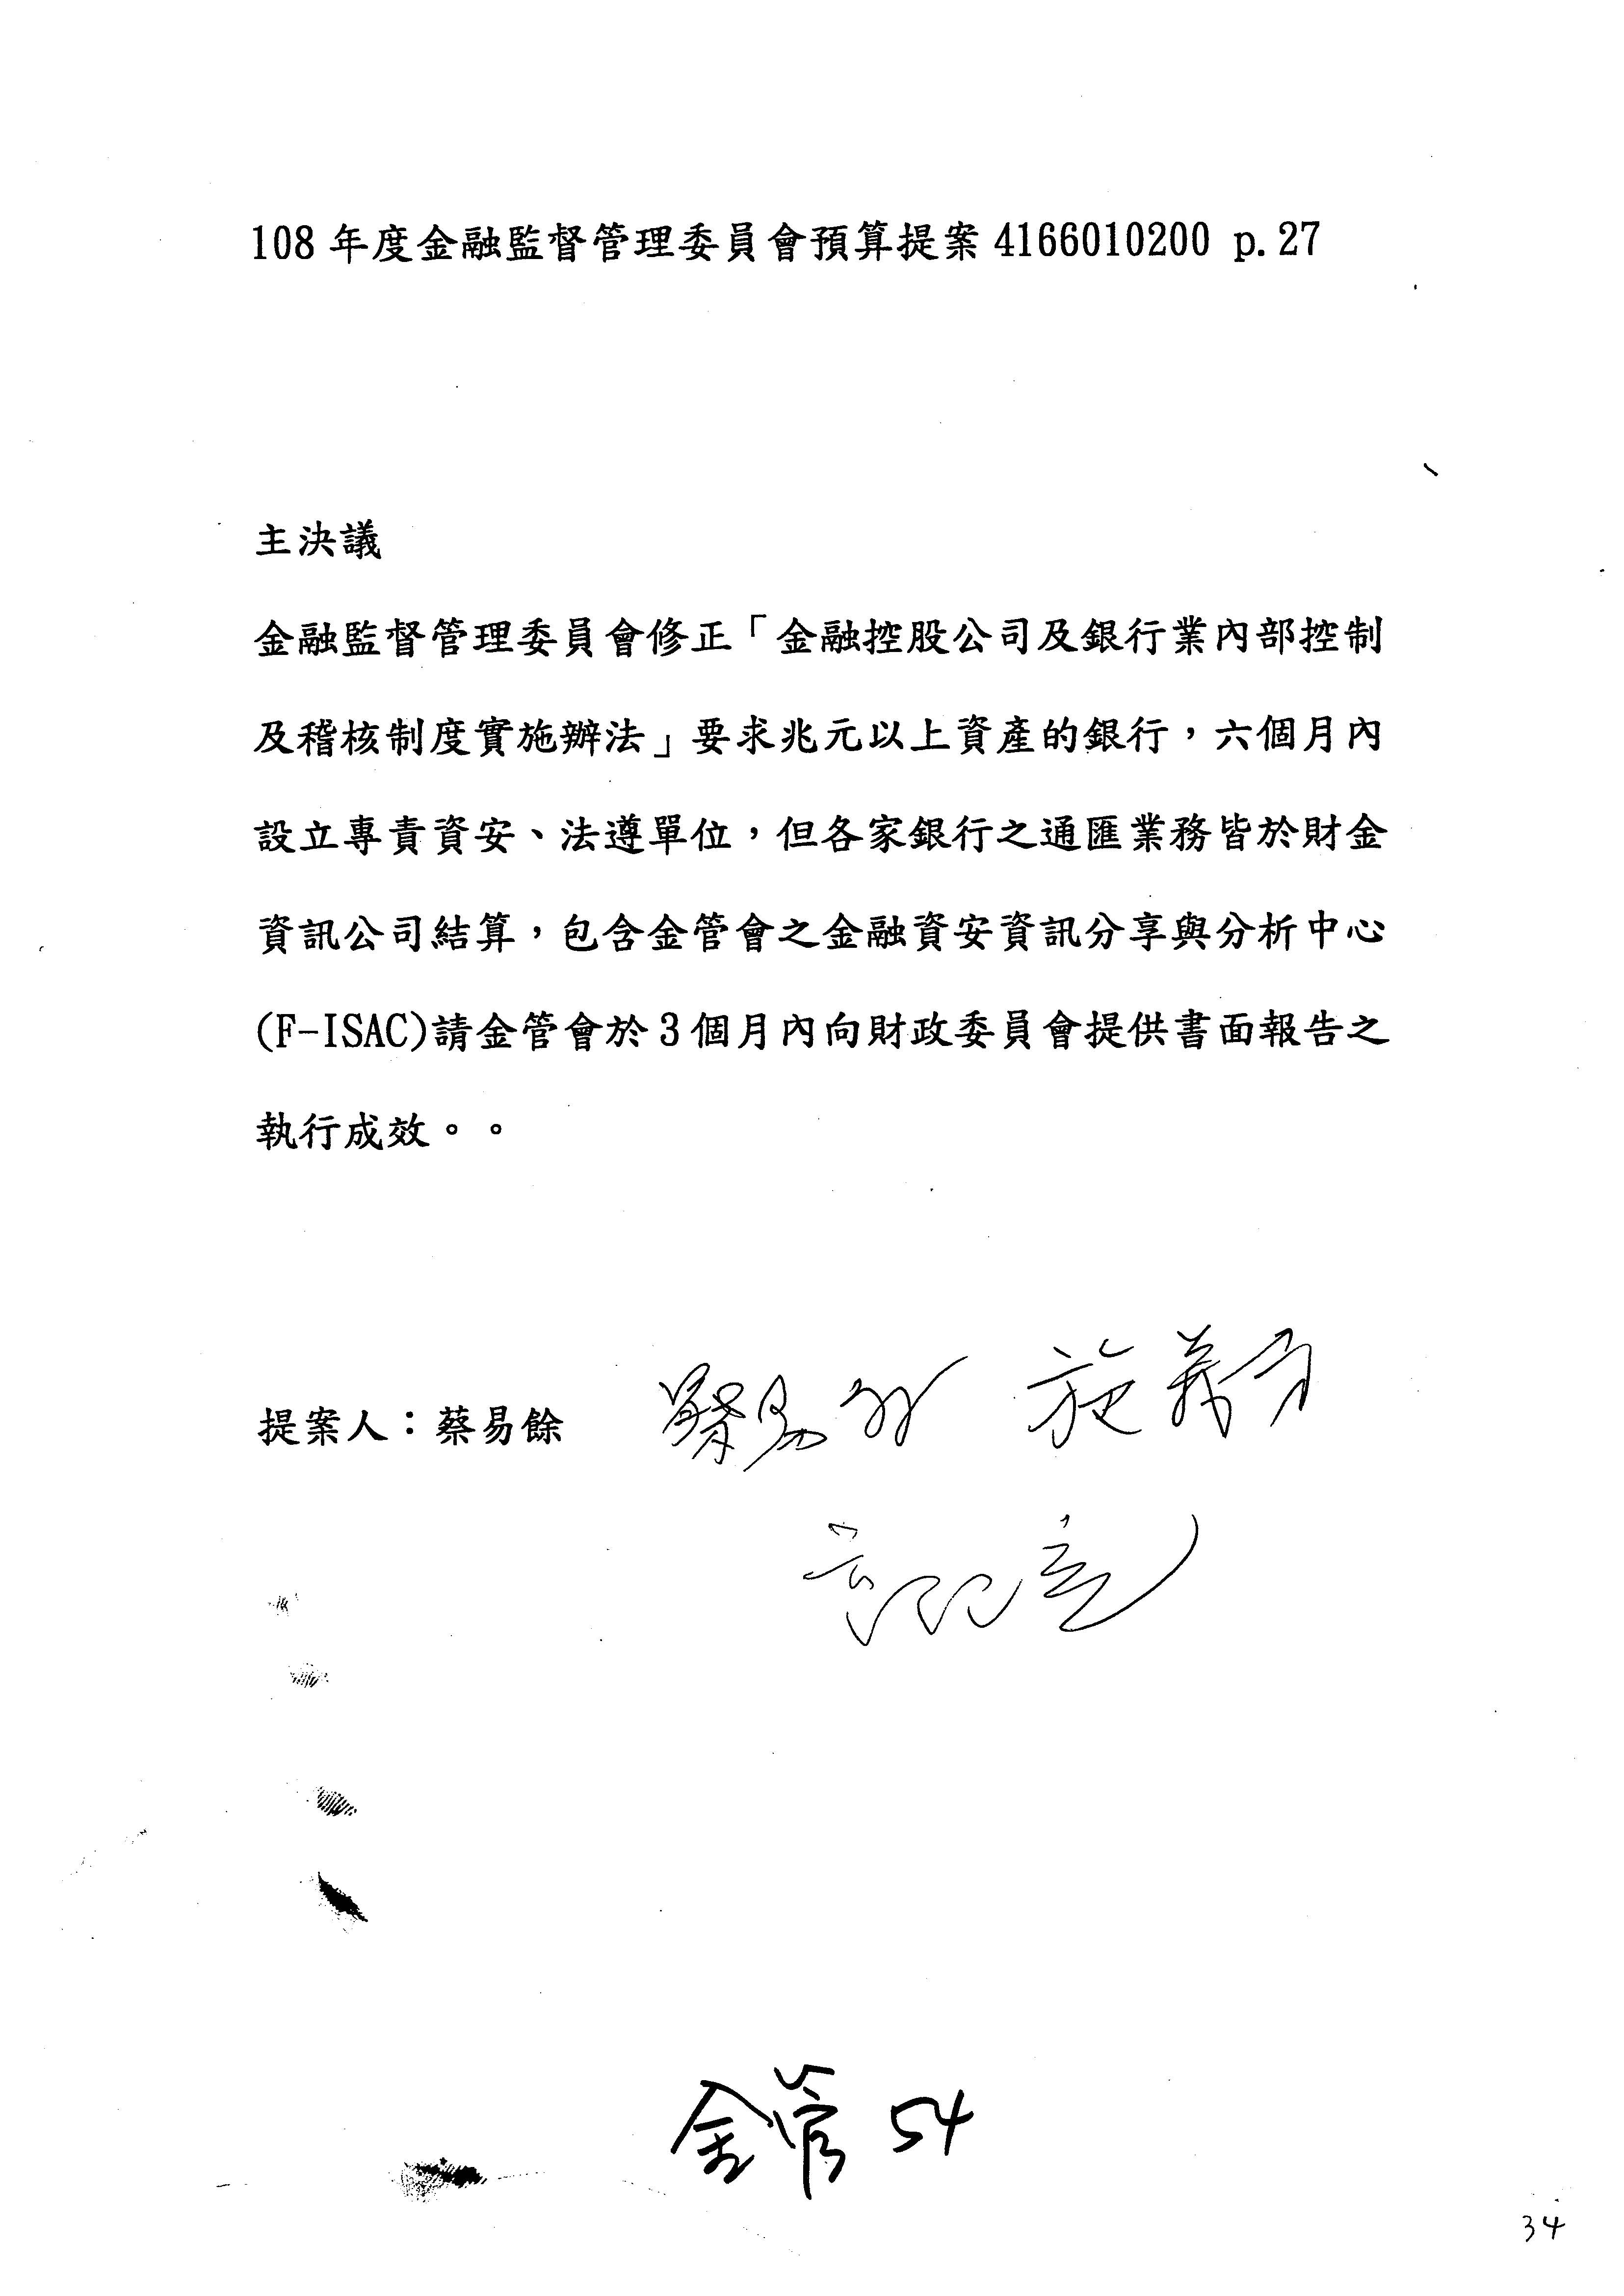 108 年度金融監督管理委員會預算提案 4166010200 p.27
主決議
金融監督管理委員會修正「金融控股公司及銀行業內部控制
及稽核制度實施辦法」要求兆元以上資產的銀行，六個月內
設立專責資安、法遵單位，但各家銀行之通匯業務皆於財金
資訊公司結算，包含金管會之金融資安資訊分享與分析中心
(F-ISAC)請金管會於 3 個月內向財政委員會提供書面報告之
執行成效。。
提案人：蔡易餘 蔡易餘 施義芳
金管 54
34